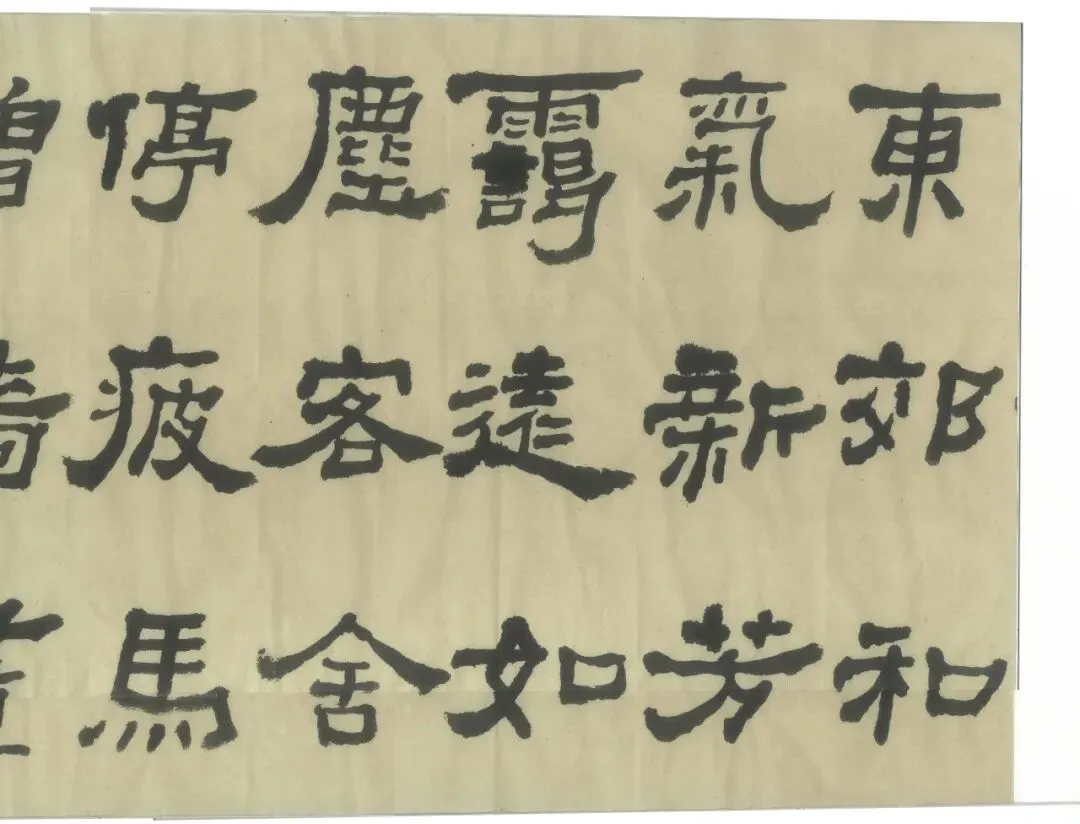 東郊和
氣新芳
靄遠如
塵客舍
停疲馬